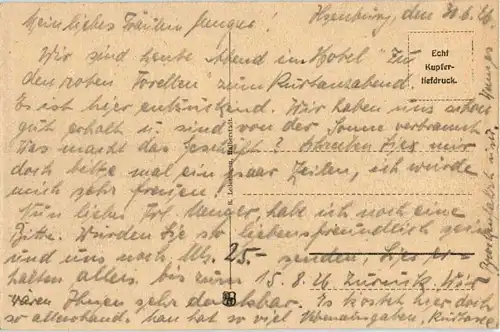 Mein liebes Fräulein Menger! Ilsenburg, den 30.6.26
Wir sind heute Abend im Hotel "Zu
den roten Forellen" zum Kurtanzabend.
Es ist hier entzückend. Wir haben uns schon
gut erholt u. sind von der Sonne verbrannt
Was macht das Geschäft? Schreiben Sie mir
doch bitte mal ein paar Zeilen, ich würde
mich sehr freuen.
Nun liebes Frl. Menger, habe ich noch eine
Bitte. Würden Sie so liebensfreundlich sein
und uns noch Mk. 25,- senden. Sie er-
halten alles bis zum 15.8.26 zurück. Wir
wären Ihnen sehr dankbar. Es kostet hier doch
so allerhand. Man hat so viel Nebenausgaben, Kurtaxe
Echt
Kupfer-
tiefdruck.